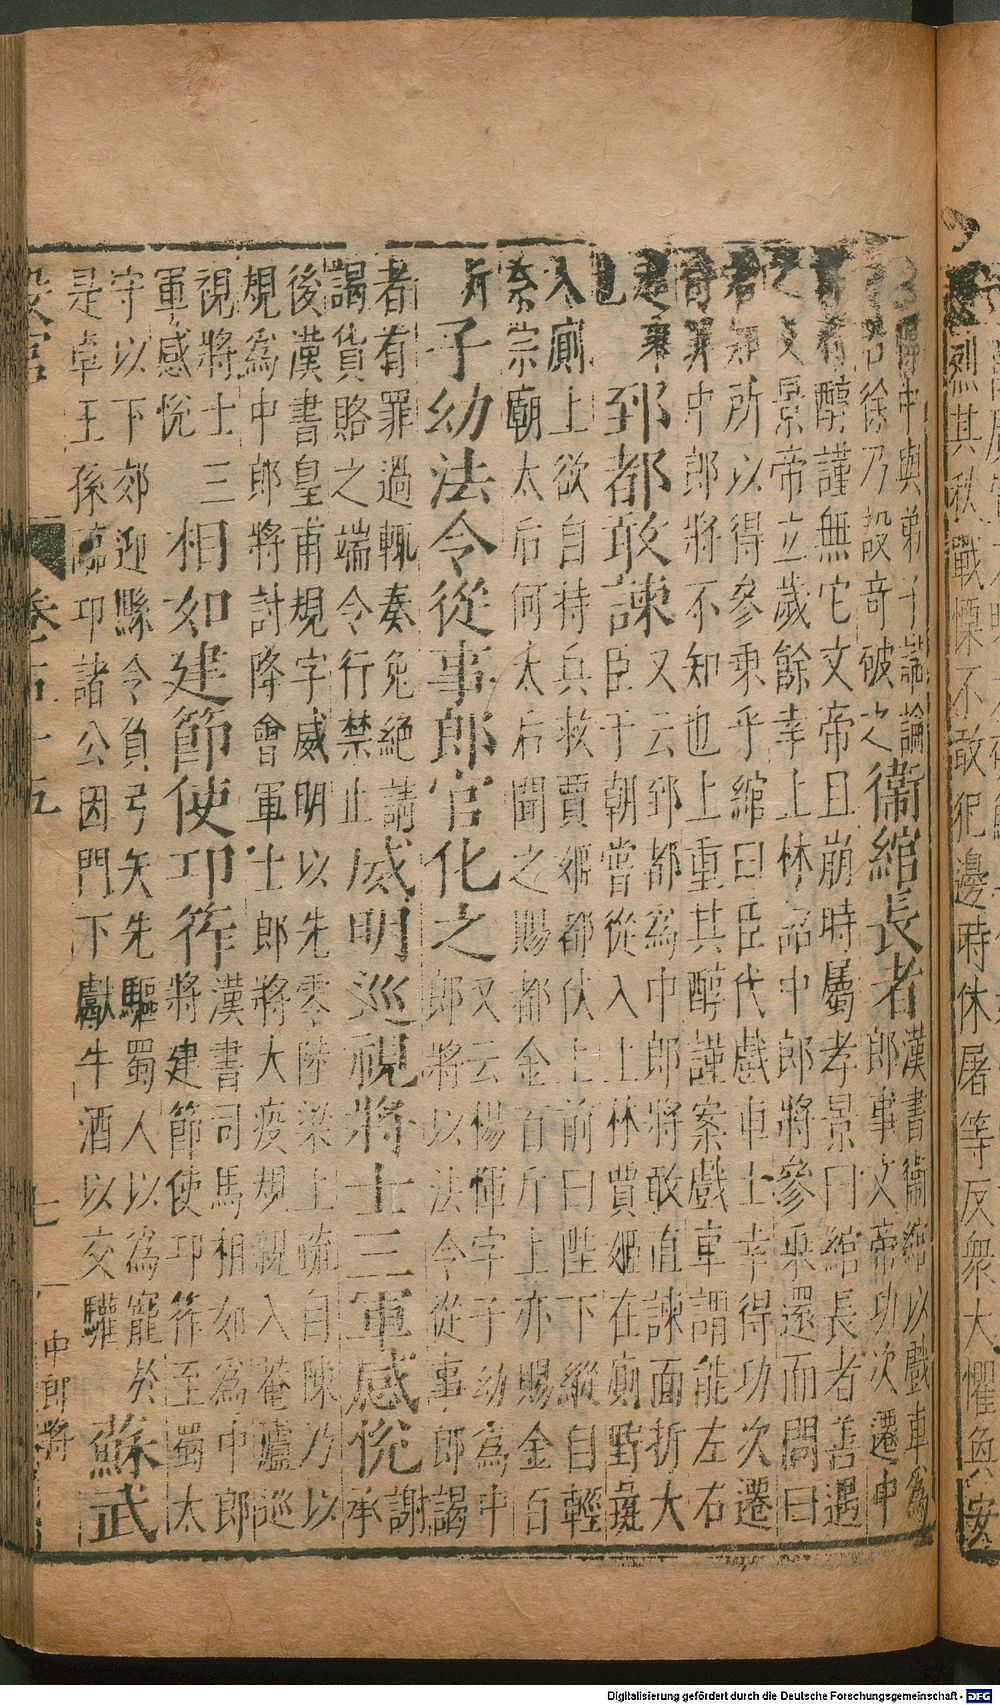 中與弟子議論
徐乃設奇破之
衞綰長者
漢書衞綰以戲車爲
郎事文帝功次遷中
醇謹無它文帝且崩時屬孝景曰綰長者善遇
之文景帝立歲餘幸上林詔中郎將參乘還而問曰
君知所以得參乘乎綰曰臣代戲車士幸得功次遷
中郎將不知也上重其醇謹案戲車謂能左右
郅都敢諫
又云郅都爲中郎將敢直諫面折大
臣于朝嘗從入上林賈姬在廁野彘
入廁上欲自持兵救賈姬都伏上前曰陛下縱自輕
柰宗廟太后何太后聞之賜都金百斤上亦賜金百
斤
子幼法令從事郎官化之
又云楊惲字子幼爲中
郎將以法令從事郎謁
者有罪過輒奏免絕請
謁貨賂之端令行禁止
威明巡視將士三軍感悅
謝承
後漢書皇甫規字威明以先零陸梁上疏自陳乃以
規爲中郎將討降會軍士郎將大疫規親入菴廬巡
視將士三
軍感悅
相如建節使邛筰
漢書司馬相如爲中郎
將建節使邛筰至蜀太
守以下郊迎縣令負弩矢先驅蜀人以爲寵於
是卓王孫臨邛諸公因門下獻牛酒以交驩
蘇武
設官
卷五十五
七
中郎將
烈其秋戰慄不敢犯邊時休屠等反衆大懼奐安
Digitalisierung gefördert durch die Deutsche Forschungsgemeinschaft - DFG